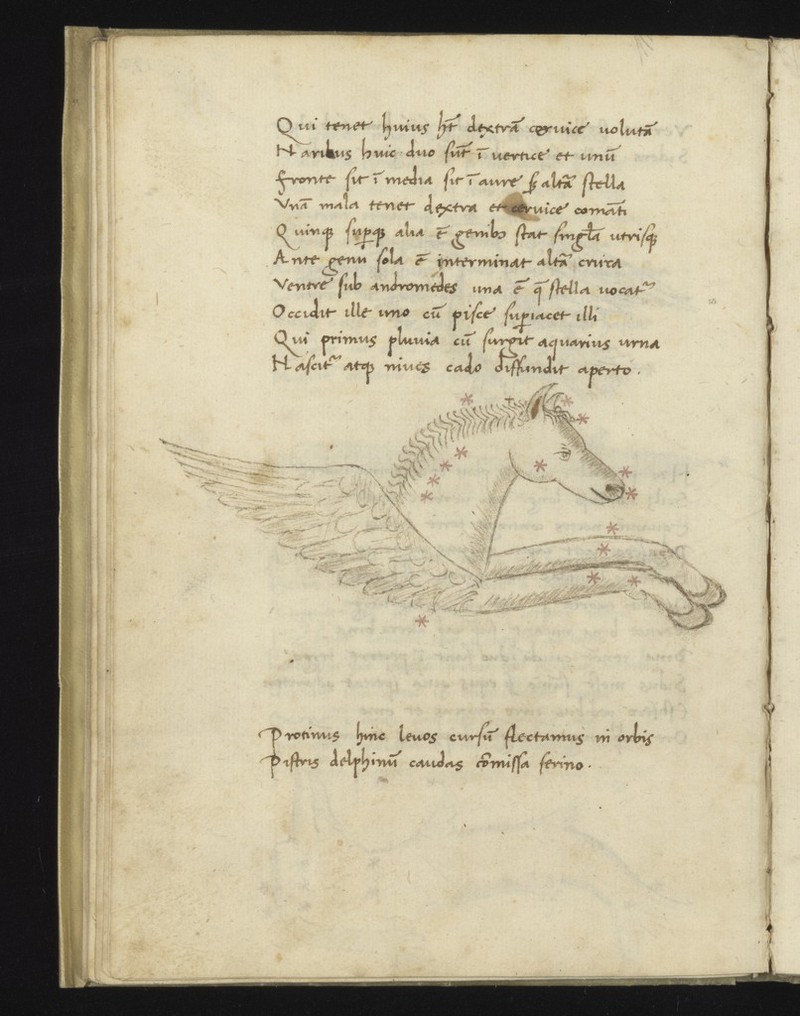 Qui tenet huius ht̄ dextrā ceruice uolutā
Naribus huic duo sūt ī vertice et unū
fronte sit ī media sit ī aure altā stella
Vnā mala tenet dextra et ceruice comāti
Quinqꝫ suꝑqꝫ alia ē genibꝰ stat singl̄a utrisqꝫ
Ante genu sola ē interminat altā crura
Ventre sub andromedes una ē q̄ stella uocatᷣ
Occidit ille uno cū pisce suꝑiacet illi
Qui primus pluuia cū surgit aquarius urna
Nascitᷣ atqꝫ niues cado diffundit aperto.
Protinus hinc leuos cursū flectamus in orbis
Pistris delphinū caudas cōmissa ferino.